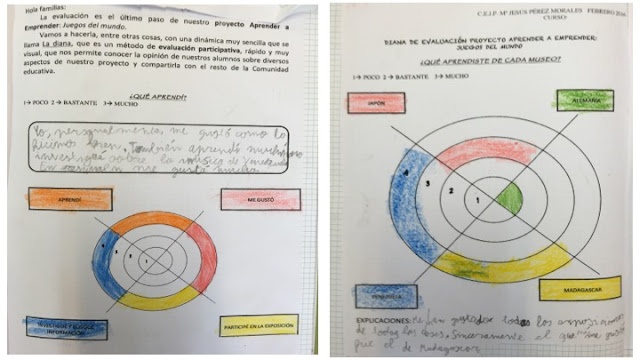 Hola familias:
La evaluación es el último paso de nuestro proyecto Aprender a
Emprender: Juegos del mundo.
Vamos a hacerla, entre otras cosas, con una dinámica muy sencilla que se
llama La diana, que es un método de evaluación participativa, rápido y muy
visual, que nos permite conocer la opinión de nuestros alumnos sobre diversos
aspectos de nuestro proyecto y compartirla con el resto de la Comunidad
educativa.
1→ POCO 2 → BASTANTE 3→ MUCHO
¿QUÉ APRENDÍ?
Yo, personalmente me gustó como lo
hicimos bien. También aprendí
investigué sobre la música de
En me gustó
APRENDÍ
ME GUSTÓ
4 3 2 1
INVESTIGUÉ Y BUSQUÉ
INFORMACIÓN
PARTICIPÉ EN LA EXPOSICIÓN
C.E.I.P. Mª JESÚS PÉREZ MORALES FEBRERO
CURSO:
DIANA DE EVALUACIÓN PROYECTO APRENDER A EMPRENDER:
JUEGOS DEL MUNDO
¿QUÉ APRENDISTE DE CADA MUSEO?
1→ POCO 2 → BASTANTE 3→ MUCHO
JAPÓN
ALEMANIA
4 3 2 1
VENEZUELA
MADAGASCAR
EXPLICACIONES: Me han gustado todos los
de todas las clases. Sinceramente el que
que el de Madagascar